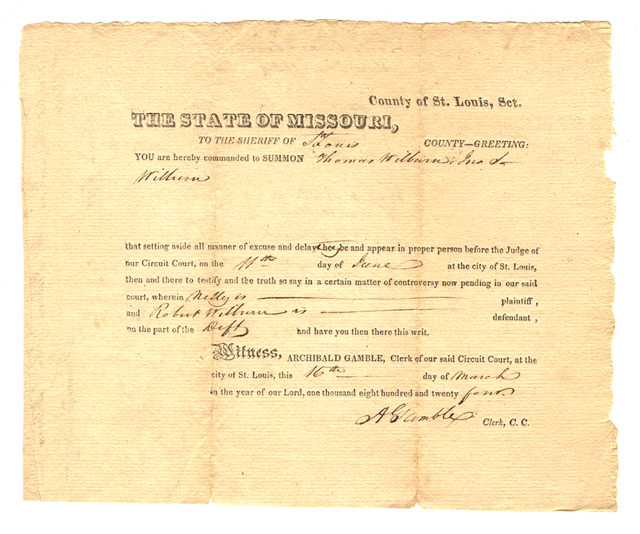 County of St. Louis, Sct.
THE STATE OF MISSOURI,
TO THE SHERIFF OF St Louis COUNTY—GREETING:
YOU are hereby commanded to SUMMON Thomas Wilburn, Jno
Wilburn
that setting aside all manner of excuse and delay they be and appear in proper person before the Judge of
our Circuit Court, on the 11th day of June at the city of St. Louis,
then and there to testify and the truth so say in a certain matter of controversy now pending in our said
court, wherein Nelly is plaintiff,
and Robert Wilburn is defendant,
on the part of the Deft and have you then there this writ.
Witness, ARCHIBALD GAMBLE, Clerk of our said Circuit Court, at the
city of St. Louis, this 16th day of March
in the year of our Lord, one thousand eight hundred and twenty four
A Gamble Clerk, C. C.